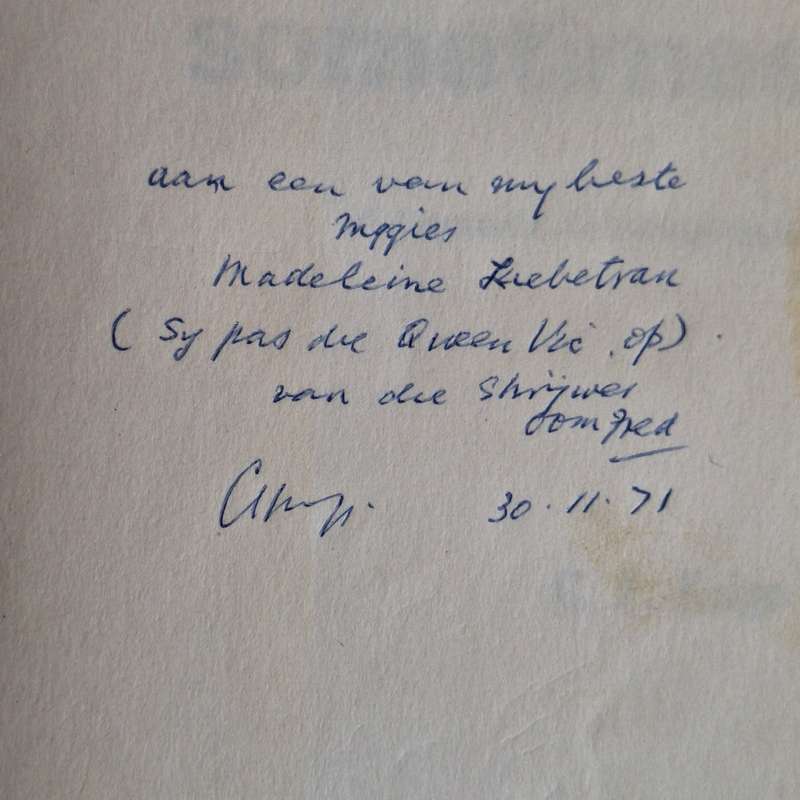 aan een van my beste
Madeleine Liebetrau
(Sy pas die Queen Vic. op)
van die Skrijwer
oom Fred
30.11.71